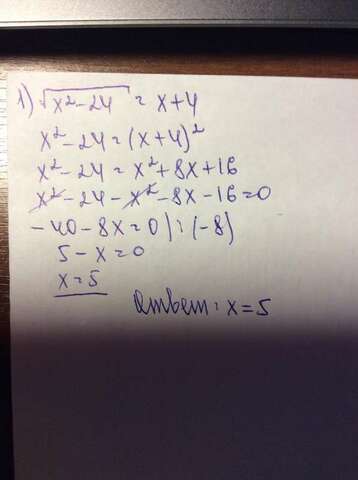 1) √(x² - 24) = x + 4
x² - 24 = (x + 4)²
x² - 24 = x² + 8x + 16
x² - 24 - x² - 8x - 16 = 0
- 40 - 8x = 0 | : (-8)
5 - x = 0
x = 5
Ответ: x = 5